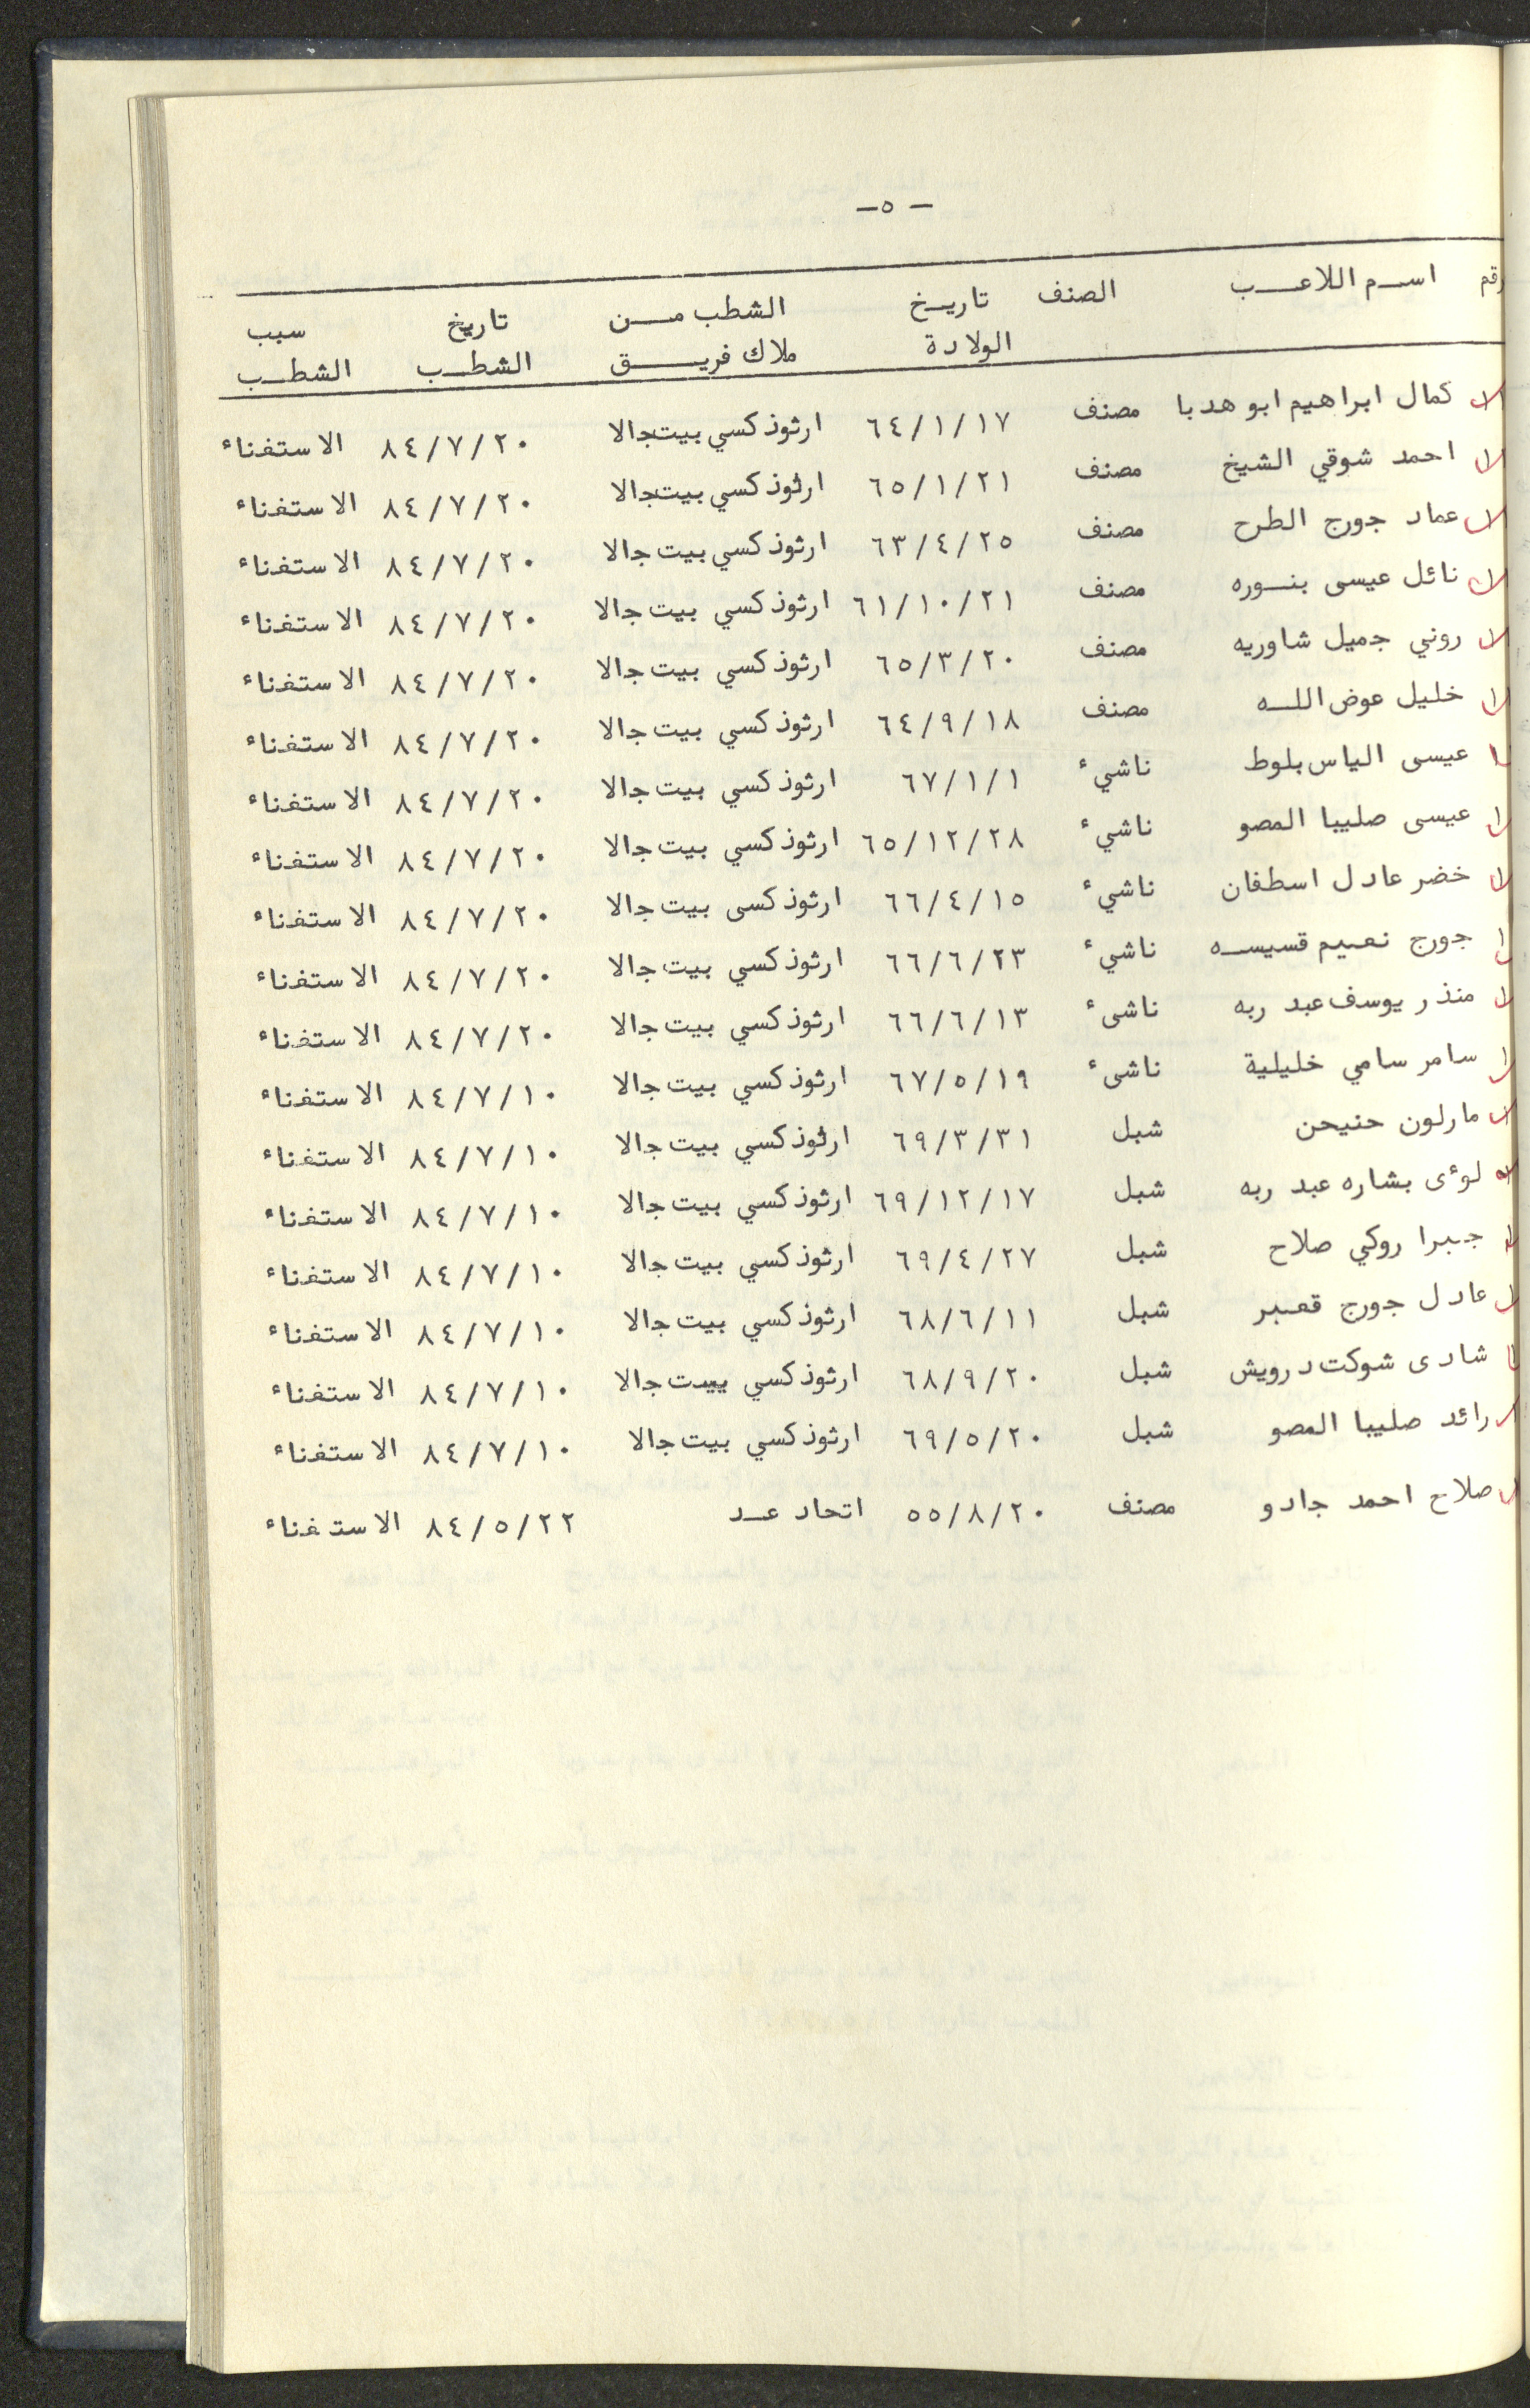 - ٥ -
رقم اسم اللاعب الصنف تاريخ الولادة الشطب من ملاك فريق تاريخ الشطب سبب الشطب
كمال ابراهيم ابو هدبا مصنف ٦٤/١/١٧ ارثوذكسي بيت جالا ٨٤/٧/٢٠ الاستغناء
احمد شوقي الشيخ مصنف ٦٥/١/٢١ ارثوذكسي بيت جالا ٨٤/٧/٢٠ الاستغناء
عماد جورج الطرح مصنف ٦٣/٤/٢٥ ارثوذكسي بيت جالا ٨٤/٧/٢٠ الاستغناء
نائل عيسى بنوره مصنف ٦١/١٠/٢١ ارثوذكسي بيت جالا ٨٤/٧/٢٠ الاستغناء
روني جميل شاوريه مصنف ٦٥/٣/٢٠ ارثوذكسي بيت جالا ٨٤/٧/٢٠ الاستغناء
خليل عوض الله مصنف ٦٤/٩/١٨ ارثوذكسي بيت جالا ٨٤/٧/٢٠ الاستغناء
عيسى الياس بلوط ناشيء ٦٧/١/١ ارثوذكسي بيت جالا ٨٤/٧/٢٠ الاستغناء
عيسى صليبا المصو ناشيء ٦٥/١٢/٢٨ ارثوذكسي بيت جالا ٨٤/٧/٢٠ الاستغناء
خضر عادل اسطفان ناشيء ٦٦/٤/١٥ ارثوذكسى بيت جالا ٨٤/٧/٢٠ الاستغناء
جورج نعيم قسيسه ناشيء ٦٦/٦/٢٣ ارثوذكسي بيت جالا ٨٤/٧/٢٠ الاستغناء
منذر يوسف عبد ربه ناشىء ٦٦/٦/١٣ ارثوذكسي بيت جالا ٨٤/٧/٢٠ الاستغناء
سامر سامي خليلية ناشىء ٦٧/٥/١٩ ارثوذكسي بيت جالا ٨٤/٧/١٠ الاستغناء
مارلون حنيحن شبل ٦٩/٣/٣١ ارثوذكسي بيت جالا ٨٤/٧/١٠ الاستغناء
لوءى بشاره عبد ربه شبل ٦٩/١٢/١٧ ارثوذكسي بيت جالا ٨٤/٧/١٠ الاستغناء
جبرا روكي صلاح شبل ٦٩/٤/٢٧ ارثوذكسي بيت جالا ٨٤/٧/١٠ الاستغناء
عادل جورج قعبر شبل ٦٨/٦/١١ ارثوذكسي بيت جالا ٨٤/٧/١٠ الاستغناء
شادى شوكت درويش شبل ٦٨/٩/٢٠ ارثوذكسي بيت جالا ٨٤/٧/١٠ الاستغناء
رائد صليبا المصو شبل ٦٩/٥/٢٠ ارثوذكسي بيت جالا ٨٤/٧/١٠ الاستغناء
صلاح احمد جادو مصنف ٥٥/٨/٢٠ اتحاد عد ٨٤/٥/٢٢ الاستغناء